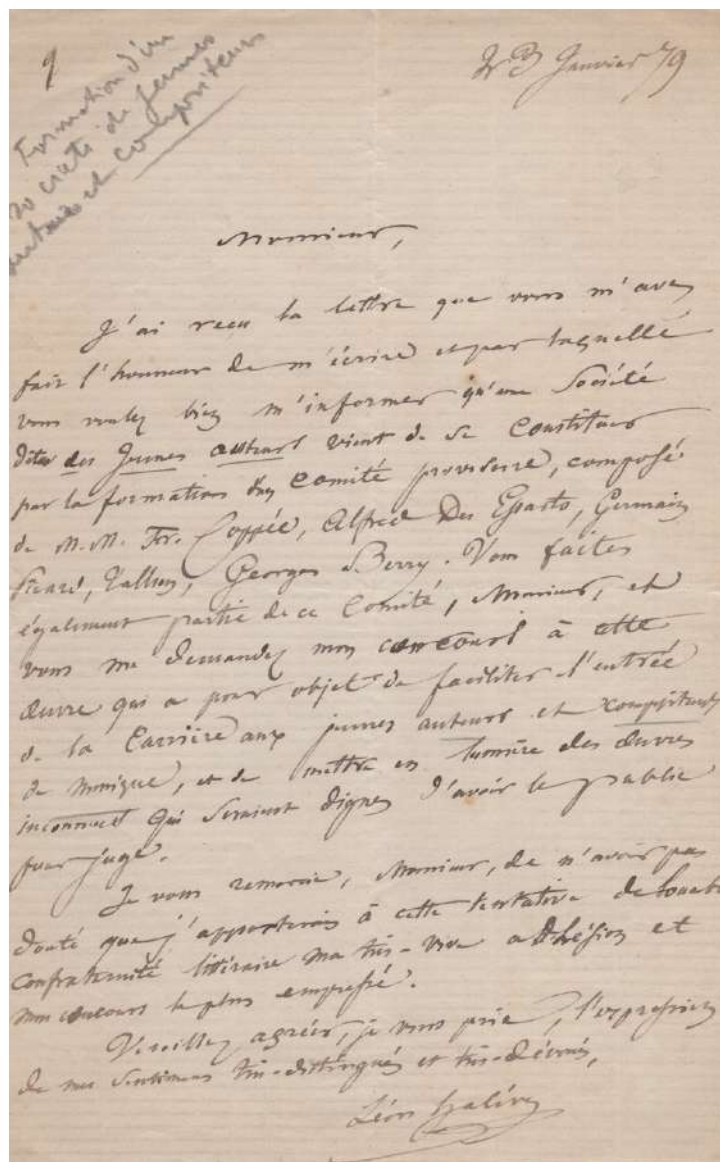 Formation d'une
société de jeunes
auteurs et compositeurs
Janvier 79
Monsieur,
J'ai reçu la lettre que vous m'avez
fait l'honneur de m'écrire et par laquelle
vous voulez bien m'informer qu'une Société
dite des Jeunes auteurs vient de se constituer
par la formation d'un Comité provisoire, composé
de M.M. Fr. Coppée, Alfred Des Essarts, Germain
Picard, Georges Berry. Vous faites
également partie de ce Comité, Monsieur, et
vous me demandez mon concours à cette
Œuvre qui a pour objet de faciliter l'entrée
de la Carrière aux jeunes auteurs et compositeurs
de musique, et de mettre en lumière des Œuvres
inconnues qui seraient dignes d'avoir le public
pour juge.
Je vous remercie, Monsieur, de n'avoir pas
douté que j'apporterais à cette tentative de louable
confraternité littéraire ma très-vive adhésion et
mon concours le plus empressé.
Veuillez agréer, je vous prie, l'expression
de mes sentimens très-distingués et très-dévoués,
Léon Halévy